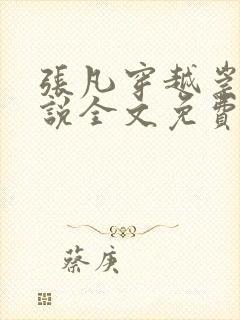 張凡穿越
說全文免費
蔡庚